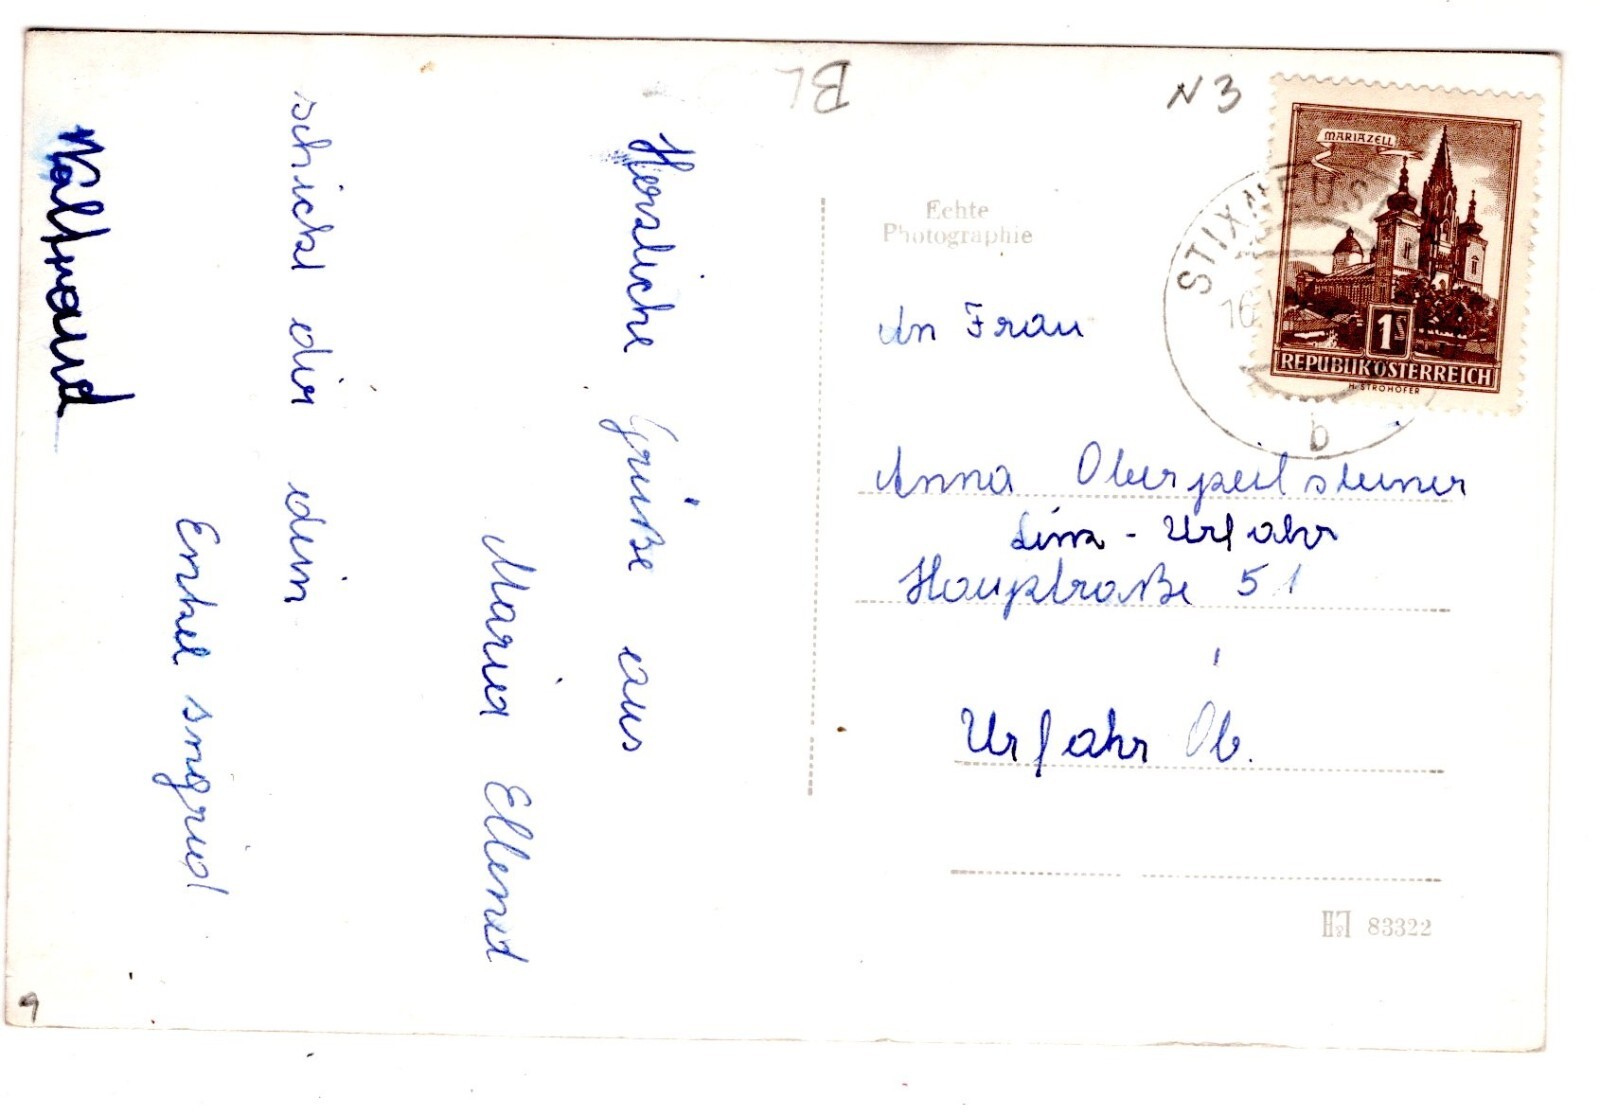 Herzliche Grüße aus
Maria Ellend
schickt dir dein
Enkel Ingrid
Waltraud
BL
N3
MARIAZELL
1S
REPUBLIK ÖSTERREICH
H. STROHOFER
STIXNEUS
b
Echte
Photographie
An Frau
Anna Oberpeilsteiner
Linz - Urfahr
Hauptraße 51
Urfahr Ob.
HJ 83322
9